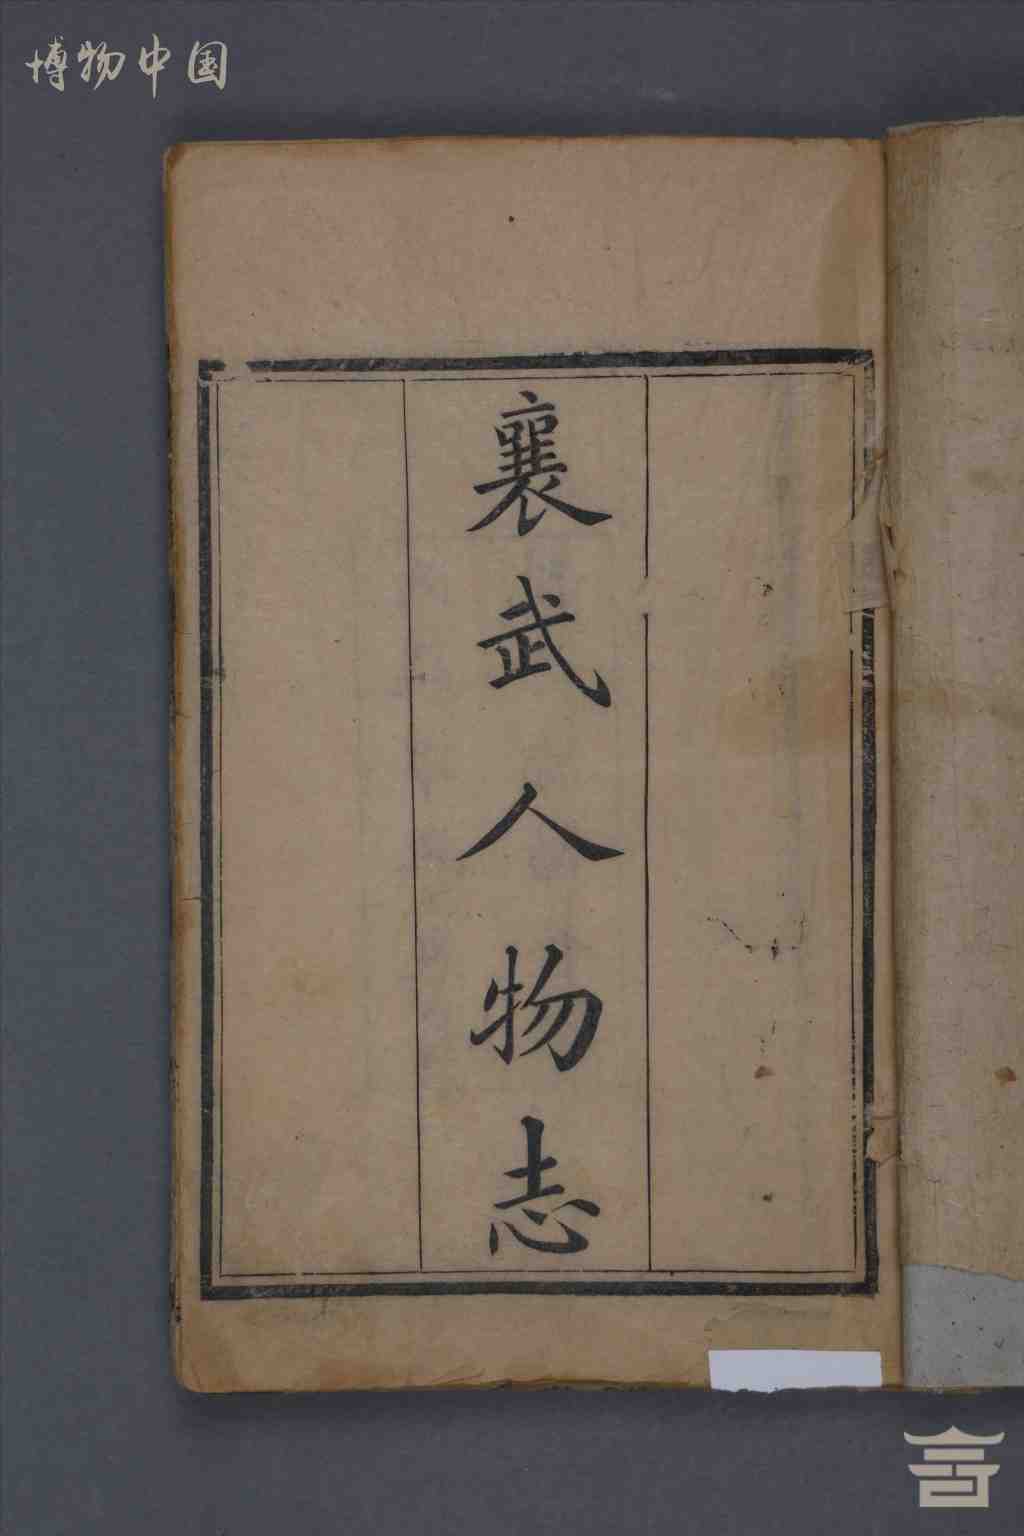 博物中国
襄武人物志